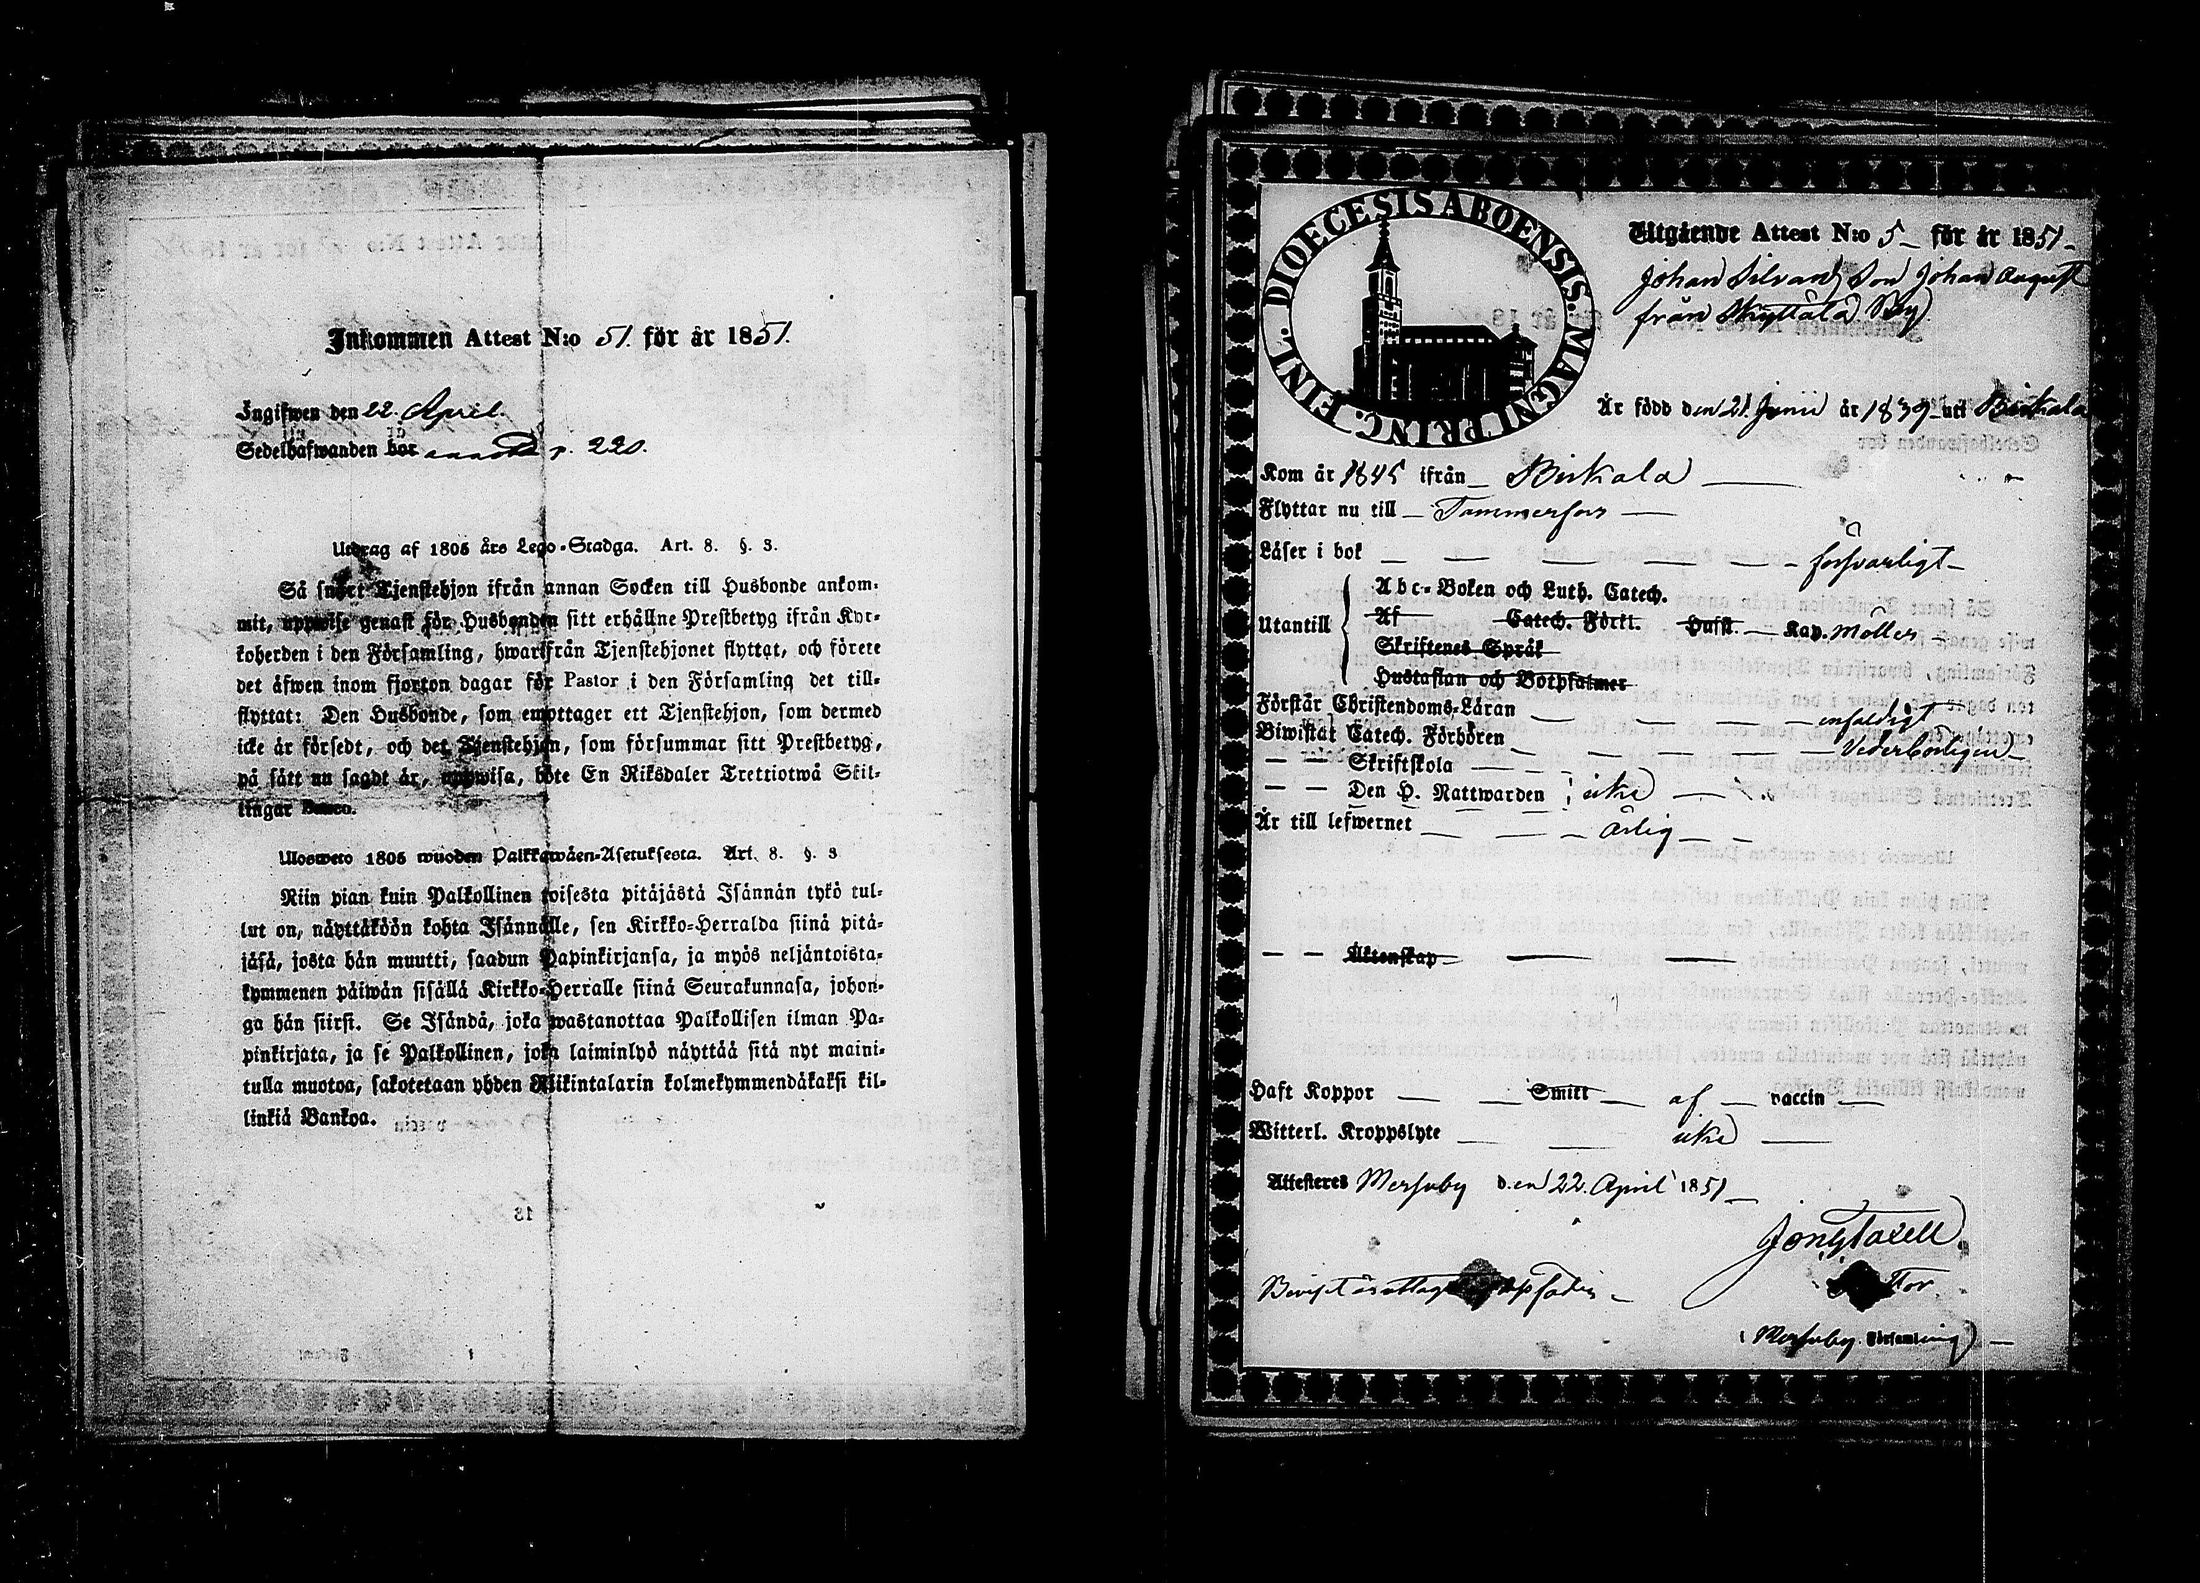 Inkommen Attest N:o 51. för år 1851.
Ingifwen den 22. April.
Sedelhafwanden bor annotd p. 220.
Utdrag af 1805 års Lego-Stadga. Art. 8. §. 3.
Så snart Tjenstehjon ifrån annan Socken till Husbonde ankom-
mit, uppwise genast för Husbonden sitt erhållne Prestbetyg ifrån Kyr-
koherden i den Församling, hwarifrån Tjenstehjonet flyttat, och förete
det äfwen inom fjorton dagar för Pastor i den Församling det till-
flyttat: Den Husbonde, som emottager ett Tjenstehjon, som dermed
icke är försedt, och det Tjenstehjon, som försummar sitt Prestbetyg,
på sätt nu sagdt är, uppwisa, böte En Riksdaler Trettiotwå Skil-
lingar Banco.
Ulosweto 1805 wuoden Palkkawäen-Asetuksesta. Art. 8. §. 3
Niin pian kuin Palkollinen toisesta pitäjästä Isännän tykö tul-
lut on, näyttäköön kohta Isännälle, sen Kirkko-Herralda siinä pitä-
jäsä, josta hän muutti, saadun Papinkirjansa, ja myös neljäntoista-
kymmenen päiwän sisällä Kirkko-Herralle siinä Seurakunnasa, johon-
ga hän siirsi. Se Isändä, joka wastanottaa Palkollisen ilman Pa-
pinkirjata, ja se Palkollinen, joka laiminlyö näyttää sitä nyt maini-
tulla muotoa, sakotetaan yhden Riikintalarin kolmekymmendäkaksi kil-
linkiä Bankoa.
DIOECESIS ABOENSIS. MAGNI PRINC. FINL.
Utgående Attest N:o 5 för år 1851
Johan Silvan Son Johan August
från By
Är född den 21. Junii år 1839 uti Birkala
Kom år 1845 ifrån Birkala
Flyttar nu till Tammerfors
Läser i bok försvarligt
Utantill
Abc-Boken och Luth. Catech.
Af Catech. Förkl. Husst. Kap. Möller
Skriftenes Språk
Hustaflan och Botpsalmer
Förstår Christendoms-Läran enfaldigt
Biwistat Catech. Förhören Vederborligen
Skriftskola
Den H. Nattwarden icke
Är till lefwernet ärlig
Äktenskap
Haft Koppor Smitt af vaccin
Witterl. Kroppslyte icke
Attesteres Messuby den 22. April 1851
(Messuby Församling)